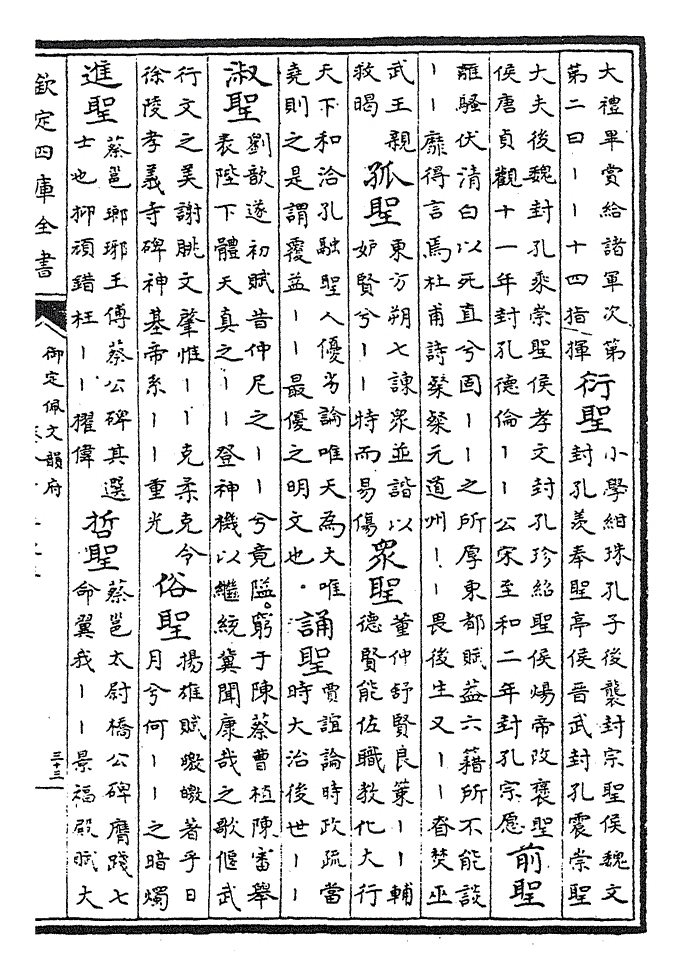 大禮畢賞給諸軍次第
第二曰丨丨十四指揮
衍聖
小學紺珠孔子後襲封宗聖侯魏文
封孔羨奉聖亭侯晉武封孔震崇聖
大夫後魏封孔乘崇聖侯孝文封孔珍紹聖侯煬帝改褒聖
侯唐貞觀十一年封孔德倫丨丨公宋至和二年封孔宗愿
前聖
離騷伏清白以死直兮固丨丨之所厚東都賦蓋六籍所不能談
丨丨靡得言焉杜甫詩粲粲元道州丨丨畏後生又丨丨昚焚巫
武王親
救暍
孤聖
東方朔七諫衆並諧以
妒賢兮丨丨特而易傷
衆聖
董仲舒賢良策丨丨輔
德賢能佐職教化大行
天下和洽孔融聖人優劣論唯天為大唯
堯則之是謂覆蓋丨丨最優之明文也
誦聖
賈誼論時政疏當
時大治後世丨丨
淑聖
劉歆遂初賦昔仲尼之丨丨兮竟隘窮于陳蔡曹植陳審舉
表陛下體天真之丨丨登神機以繼統冀聞康哉之歌偃武
行文之美謝朓文肇惟丨丨克柔克令
徐陵孝義寺碑神基帝系丨丨重光
俗聖
揚雄賦曒曒著乎日
月兮何丨丨之暗燭
進聖
蔡邕瑯琊王傅蔡公碑其選
士也抑頑錯枉丨丨擢偉
哲聖
蔡邕太尉橋公碑膺踐七
命翼我丨丨景福殿賦大
欽定四庫全書
御定佩文韻府
三十三